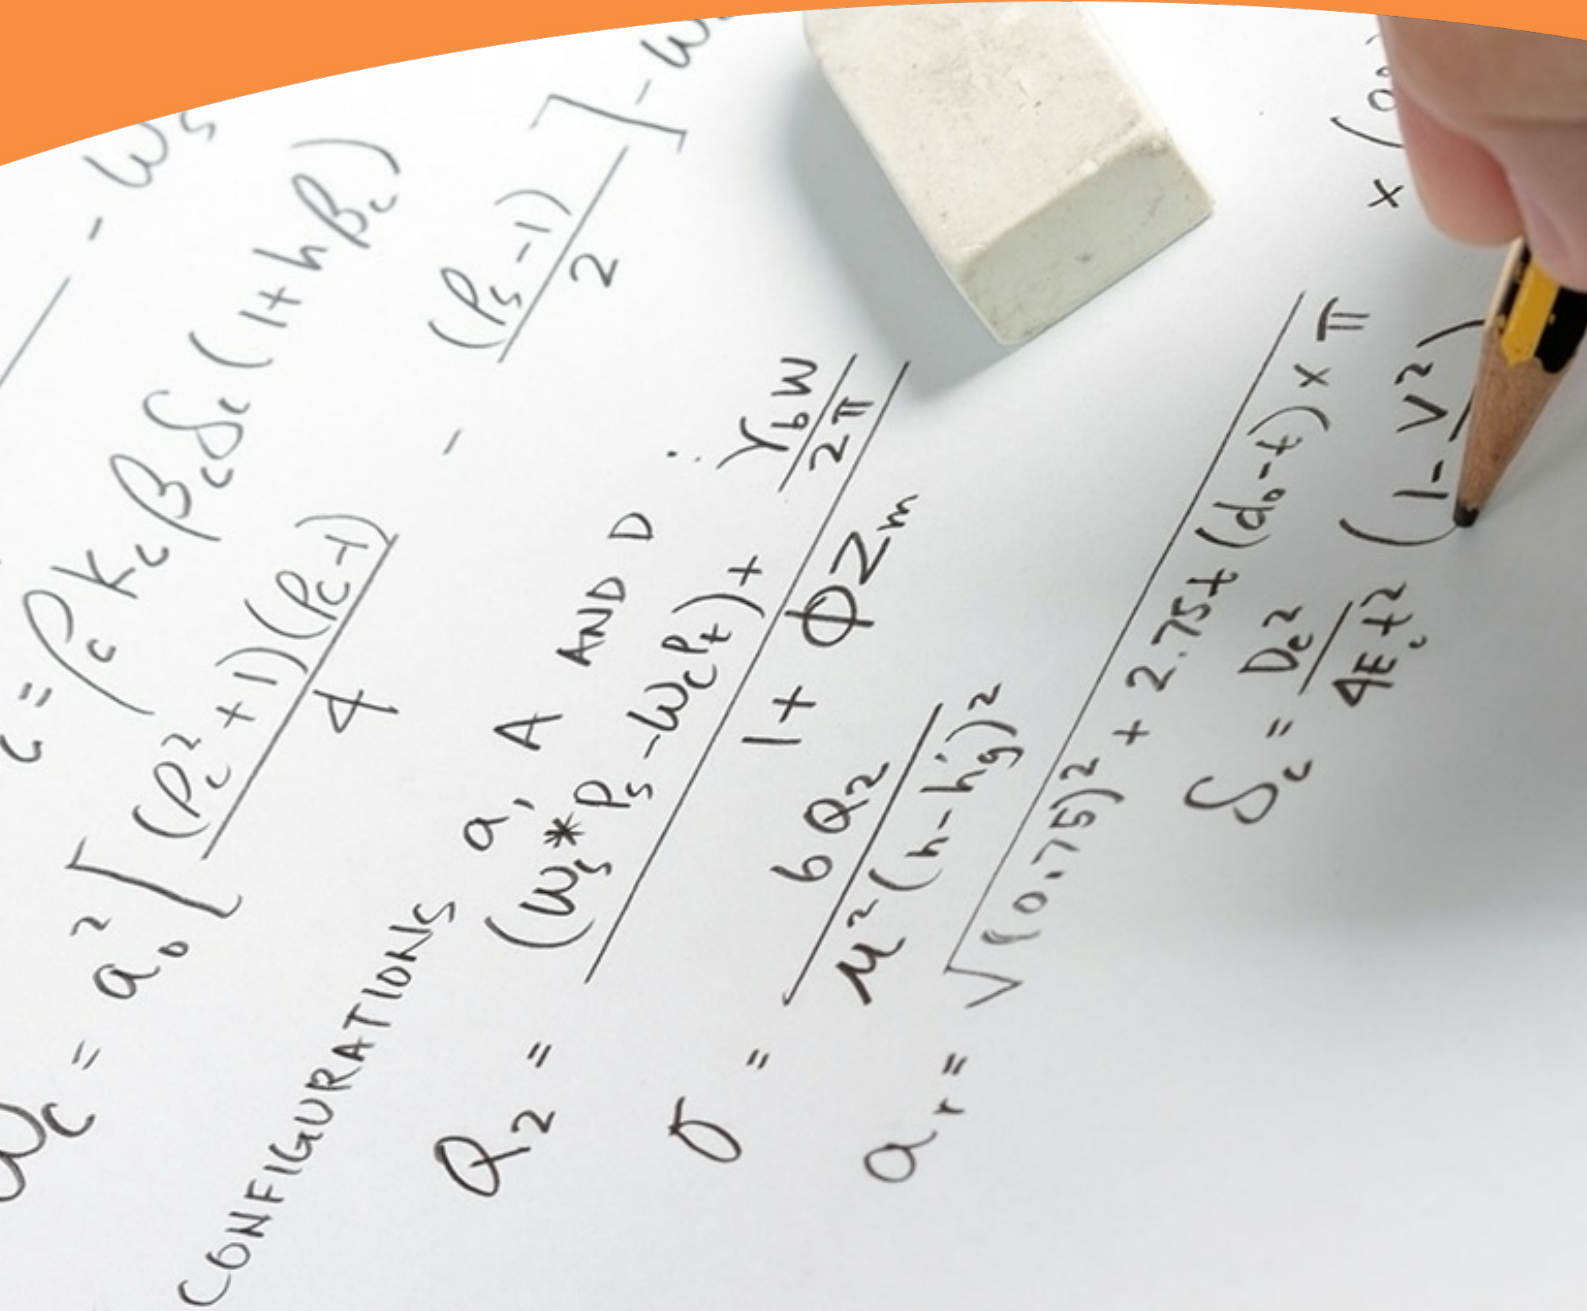 - ωs
c = ρc Kc βc δc (1 + hβc)
ωc = a₀² [ (ρc² + 1)(ρc - 1) / 4 - (ρs - 1) / 2 ] - ω
CONFIGURATIONS a, A AND D :
Q₂ = (ωs* ρs - ωc ρt) + γb W / 2π / 1 + φZm
σ = 6Q₂ / μ² (h - hg)²
ar = √(0.75)² + 2.75t (d₀ - t) × π
δc = Dc² / 4Ec t² (1 - ν²)
× (